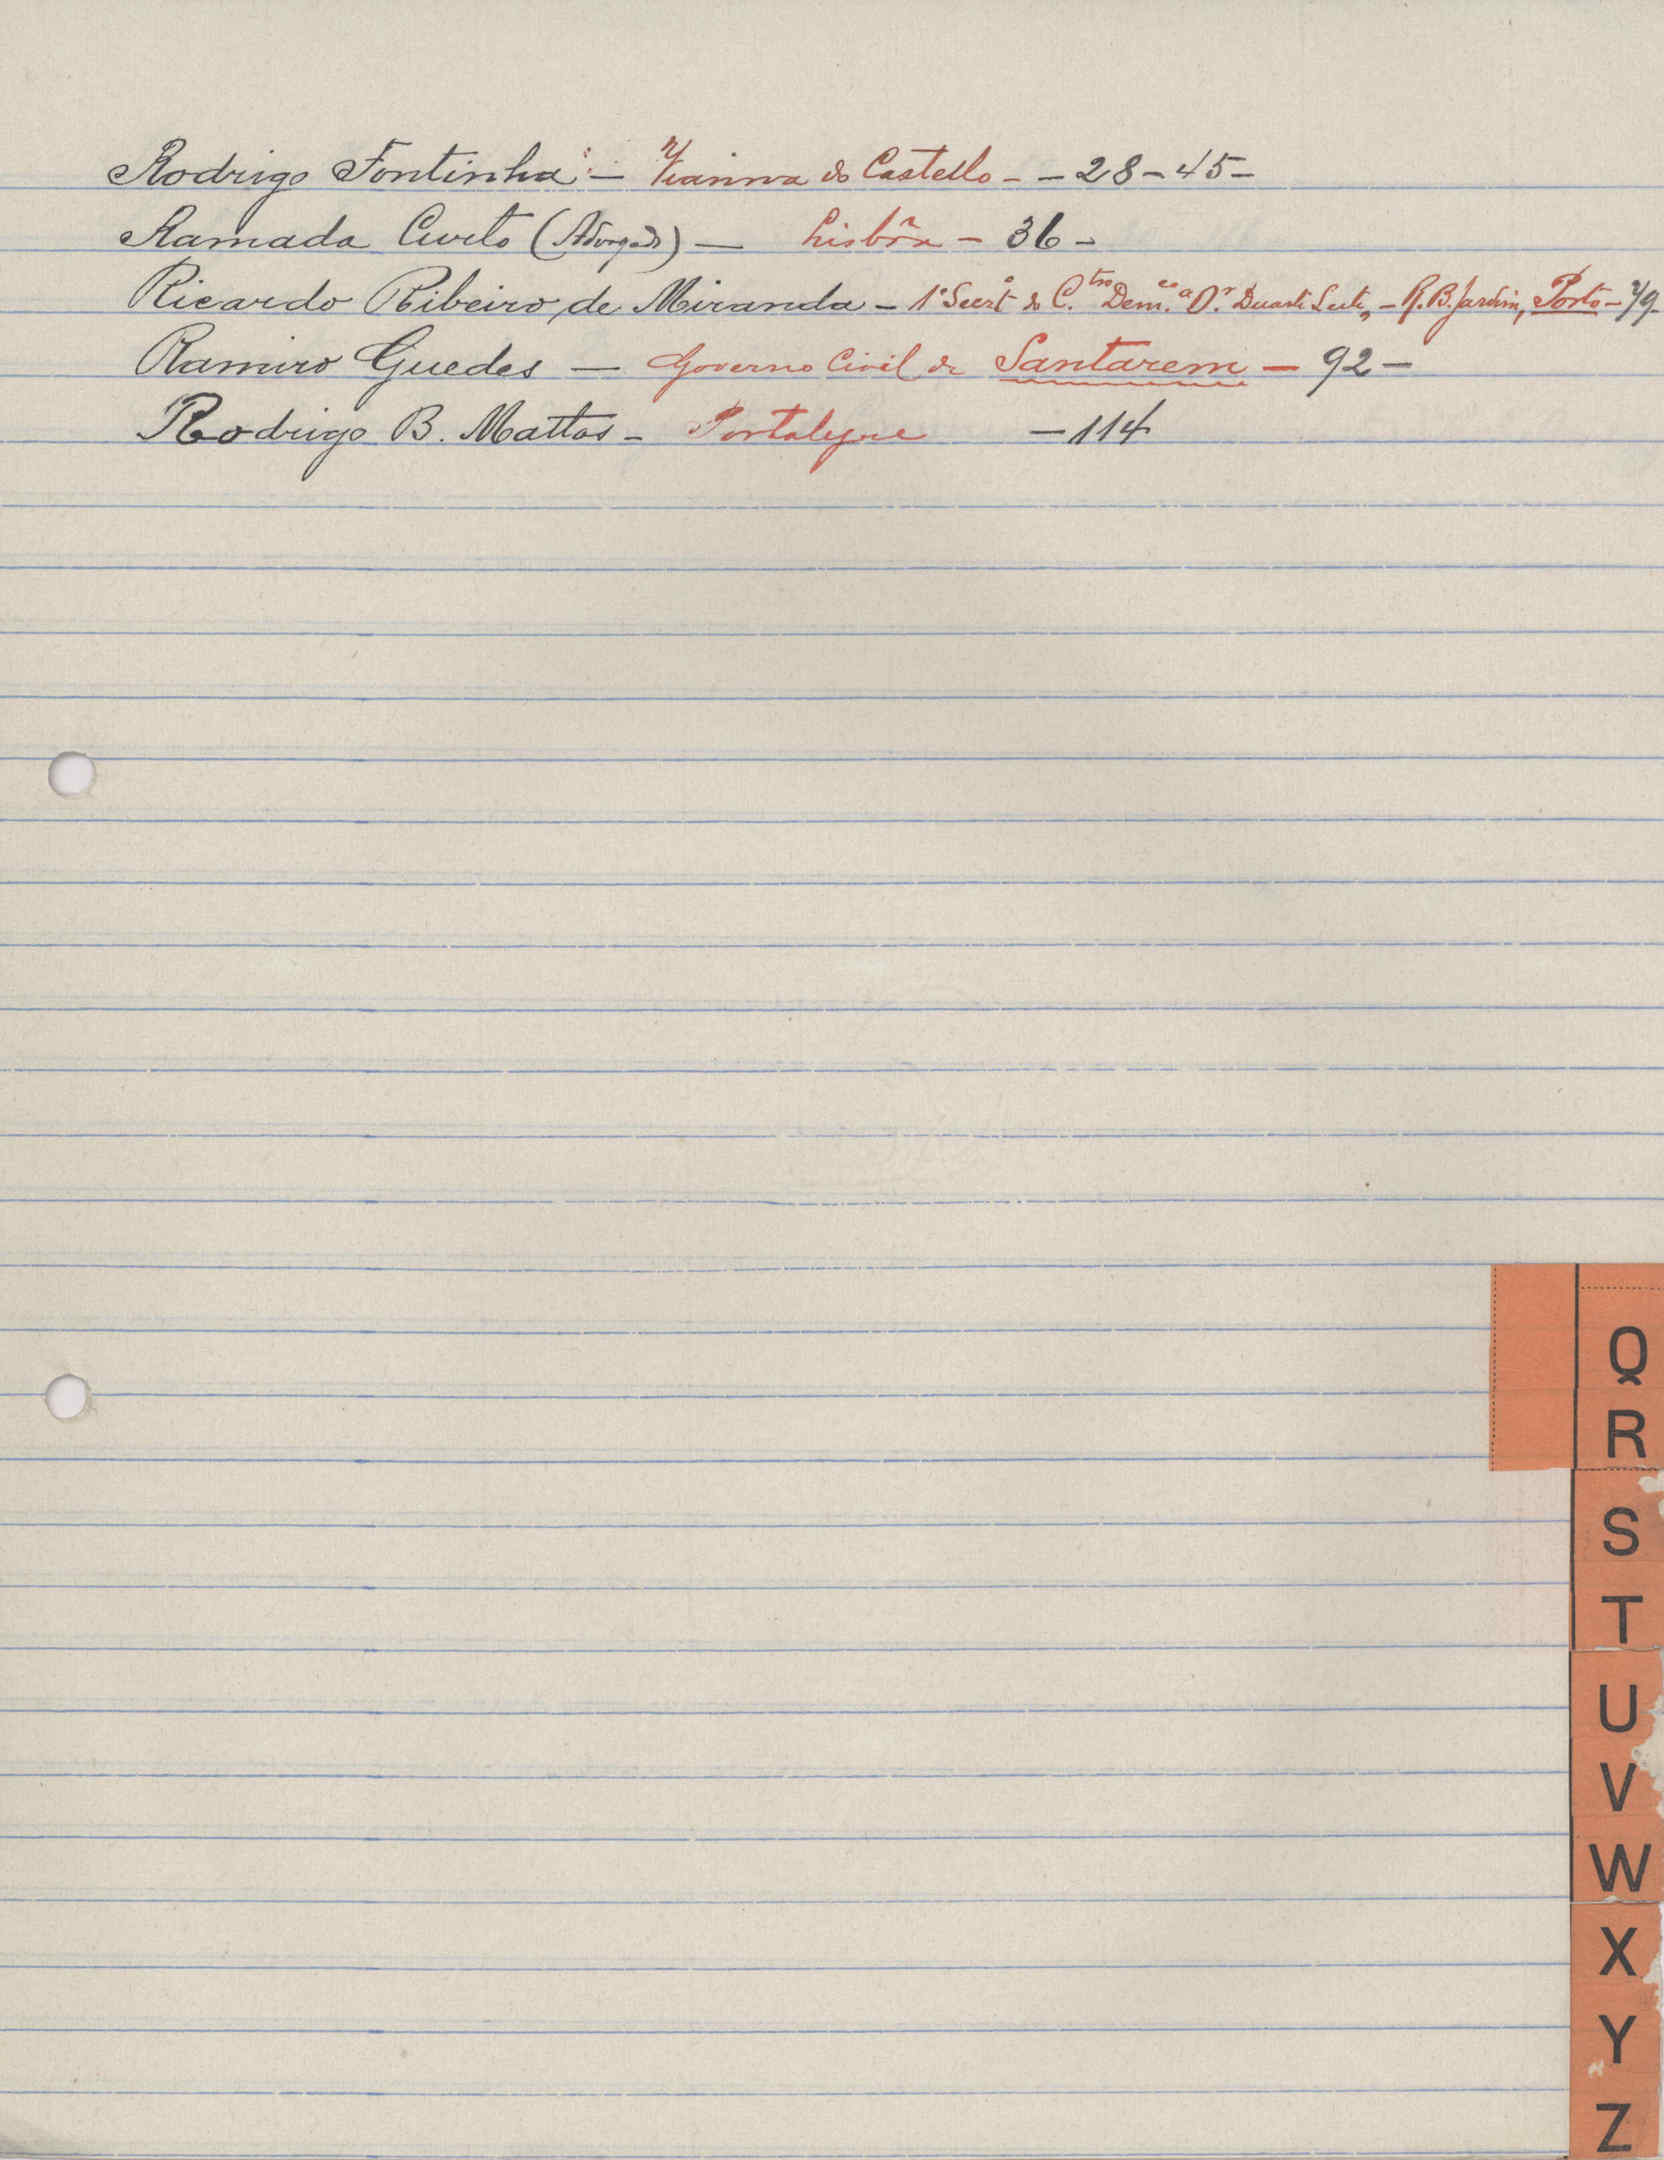 Rodrigo Fontinha - Vianna do Castello - - 28 - 45 -
Ramada Curto (Advogado) - Lisbôa - 36 -
Ricardo Ribeiro de Miranda - 1º Secrt.º do C.tro Dem.co Dr. Duarte Leite, - R. B. Jardim, Porto -
Ramiro Guedes - Governo Civil de Santarem - 92 -
Rodrigo B. Mattos - Portalegre - 114
Q
R
S
T
U
V
W
X
Y
Z